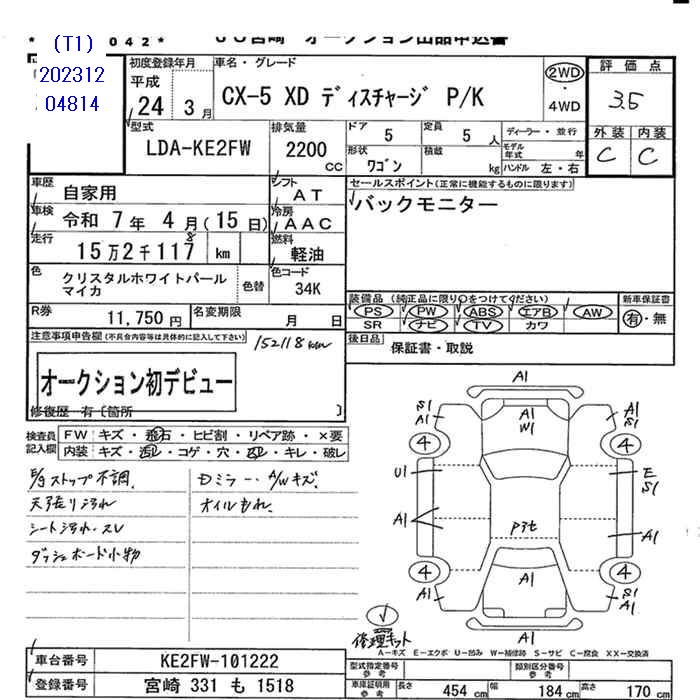 (T1)
202312
04814
* 042*
JU宮崎 オークション出品申込書
初度登録年月
平成
24 3月
車名・グレード
CX-5 XD ディスチャージ P/K
2WD
・
4WD
評価点
3.5
外装 内装
C C
型式
LDA-KE2FW
排気量
2200
CC
ドア 5
定員 5人
ディーラー・並行
モデル年式 年
形状 ワゴン
積載 kg
ハンドル 左・右
車歴 自家用
シフト AT
セールスポイント(正常に機能するものに限ります)
バックモニター
車検 令和 7年 4月(15日)
冷房 AAC
走行 15万2千117 km
8
燃料 軽油
色 クリスタルホワイトパールマイカ
色替
色コード 34K
装備品(純正品に限り○をつけてください)
PS PW ABS エアB AW
SR ナビ TV カワ
新車保証書
有・無
R券 11,750円
名変期限 月 日
後日品 保証書・取説
注意事項申告欄(不具合内容等は具体的に記入して下さい)
152118km
オークション初デビュー
修復歴 有〔箇所 〕
検査員記入欄
FW キズ・飛石・ヒビ割・リペア跡・×要
内装 キズ・汚れ・コゲ・穴・凹・キレ・破レ
E/gストップ不調.
天張り汚れ
シート汚れ・スレ
ダッシュボード小物
Dミラー・A/Wキズ.
オイルもれ.
A1
S1 A1
A1 W1
A1 S1
4 4
U1
E S1
A1
Pít
A1
4 4
A1
A1
S1 A1
A1
修理キット
A-キズ E-エクボ U-凹み W-補修跡 S-サビ C-腐食 XX-交換済
車台番号 KE2FW-101222
登録番号 宮崎 331 も 1518
型式指定番号 参考
類別区分番号 参考
車庫証明用 参考
長さ 454 cm
幅 184 cm
高さ 170 cm